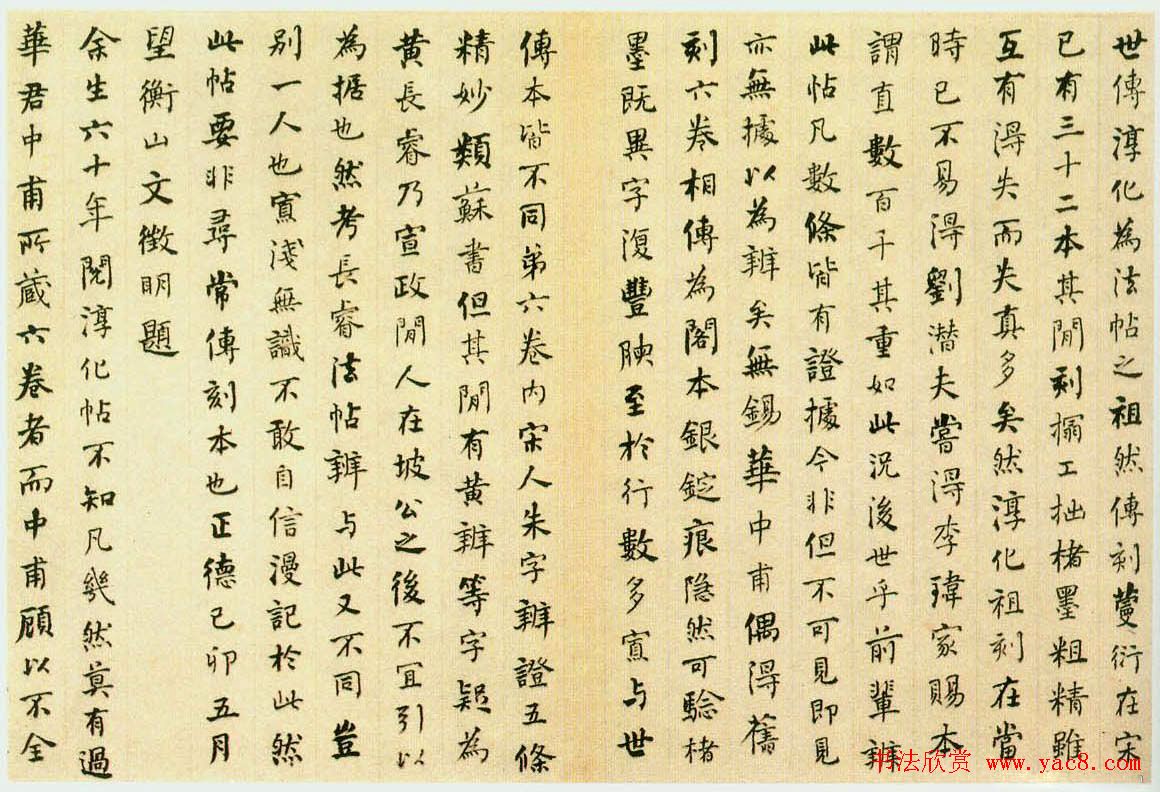 世傳淳化為法帖之祖然傳刻蔓衍在宋
已有三十二本其間刻搨工拙楮墨粗精雖
互有淂失而失真多矣然淳化祖刻在當
時已不易淂劉潜夫嘗淂李瑋家賜本
謂直數百千其重如此況後世乎前輩辨
此帖凡數條皆有證據今非但不可見即見
亦無據以為辨矣無錫華中甫偶淂舊
刻六卷相傳為閣本銀錠痕隐然可驗楮
墨既異字復豐腴至於行數多寡与世
傳本皆不同弟六卷内宋人朱字辨證五條
精妙類蘇書但其間有黄辨等字疑為
黄長睿乃宣政間人在坡公之後不宜引以
為据也然考長睿法帖辨与此又不同豈
別一人也寡淺無識不敢自信漫記於此然
此帖要非尋常傳刻本也正德己卯五月
望衡山文徵明題
余生六十年閱淳化帖不知凡幾然莫有過
華君中甫所蔵六卷者而中甫顧以不全
书法欣赏 www.yac8.com